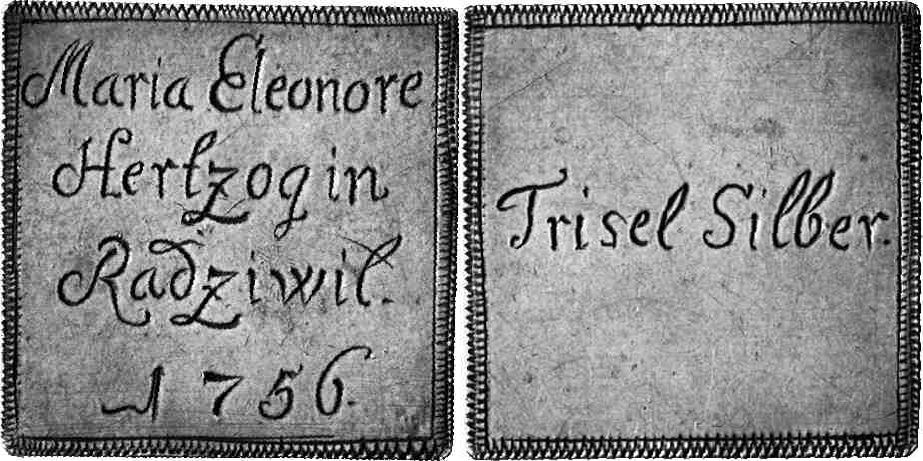 Maria Eleonore
Hertzogin
Radziwil.
1756.
Trisel Silber.